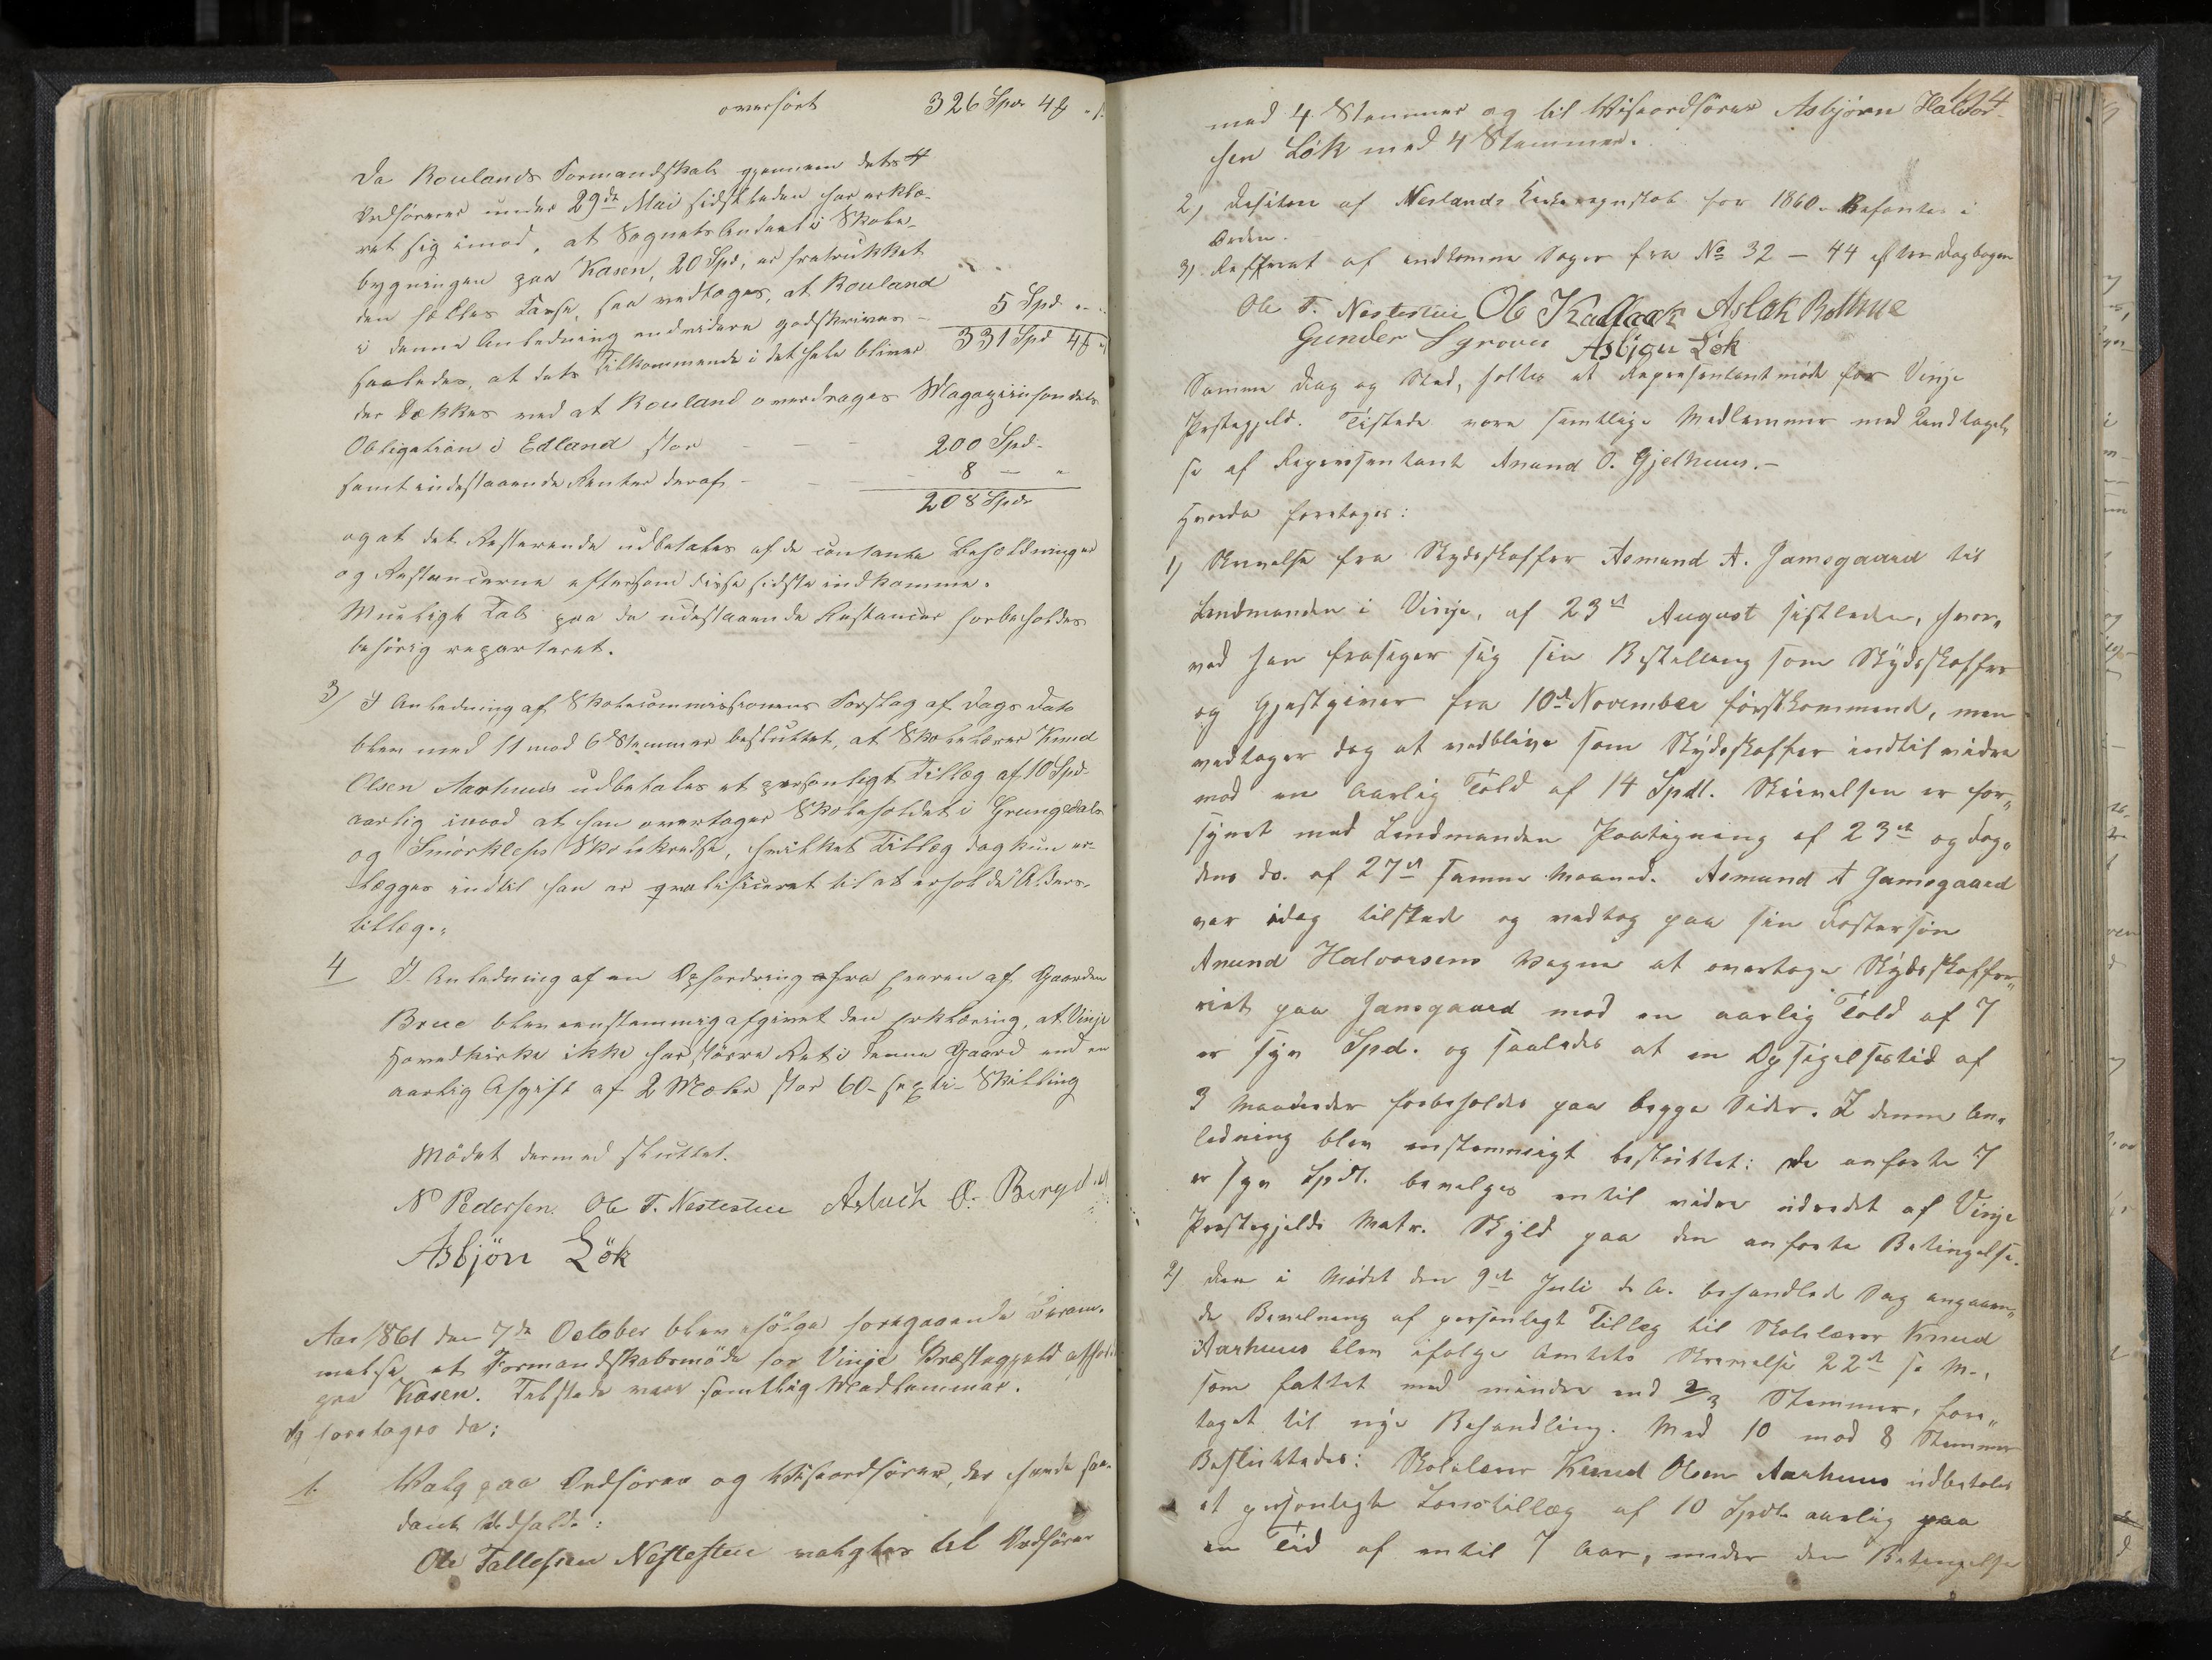 overført 326 Spd 4 ß
Da Roulands Formandskab gjennem dets
Ordfører under 29de Mai sidstleden har erklæ-
ret sig imod, at Sognets Andeel i Skole-
bygningen paa Kasen, 20 Spd, er fratrukket
den fælles Kasse, saa vedtages, at Rouland
i denne Anledning endvidere godskrives – 5 Spd
saaledes, at dets Tilkommende i det hele bliver 331 Spd 4 ß
der dækkes ved at Rouland overdrages Magazinfondets
Obligation i Edland stor – – – 200 Spd.
samt indestaaende Renter deraf – – – 8 – "
208 Spd
og at det Resterende udbetales af de contante Beholdninger
og Restancerne eftersom disse sidste indkomme.
Mueligt Tab paa de udestaaende Restancer forbeholdes
behørig reparteret.
3/ I Anledning af Skolecommissionens Forslag af Dags Dato
blev med 11 mod 6 Stemmer besluttet, at Skolelærer Knud
Olsen Aarhuus udbetales et personligt Tillæg af 10 Spd.
aarlig imod at han overtager Skoleholdet i Grungedals
og Smørkleps Skolekredse, hvilket Tillæg dog kun er-
lægges indtil han er qvalificeret til at erholde Alders-
tillæg.
4 I Anledning af en Opfordring fra Eieren af Gaarden
Brue blev eenstemmig afgivet den Erklæring, at Vinje
Hovedkirke ikke har større Ret i denne Gaard end en
aarlig Afgift af 2 Mæler stor 60 – sexti – Skilling
Mødet dermed sluttet.
N Pedersen. Ole T. Nestestue Aslach O. Berge
Asbjön Lök
Aar 1861 den 7de October blev ifølge foregaaende Beram-
melse et Formandskabsmøde for Vinje Præstegjeld afholdt
paa Kasen. Tilstede vare samtlig Medlemmer.
foretoges da:
1. Valg paa Ordfører og Viseordfører, der havde saa-
dant Udfald:
Ole Tallefsen Nestestue valgtes til Ordfører
194
med 4 Stemmer og til Viseordfører Asbjørn Halvor-
sen Løk med 4 Stemmer.
2) Desision af Neslands Kirkeregnskab for 1860. Befantes i
Orden.
3) Refferat af indkomne Sager fra No 32 – 44 efter Dagbogen
Ole T. Nestestue Ole Aslak Bothue
Gunder Asbjøn Løk
Samme Dag og Sted, holtes et Representantmøde for Vinje
Prestegjeld. Tilstede vare samtlige Medlemmer med Undtagel-
se af Representant Anund O. Gjelhuus. –
Hvorda foretoges:
1) Skrivelse fra Skydsskaffer Asmund A. Jamsgaard til
Lendmanden i Vinje, af 23de August sistleden, hvor-
ved han frasiger sig sin Bestilling som Skydsskaffer
og Gjestgiver fra 10de November førstkommend, men
vedtager dog at vedblive som Skydsskaffer indtil videre
mod en aarlig Told af 14 Spdl. Skrivelsen er for-
synet med Lendmanden Paategning af 23de og Fog-
dens do. af 27de samme Maaned. Asmund A Jamsgaard
var idag tilstede og vedtog paa sin Fostersøn
Anund Halvorsens Vegne at overtage Skydsskaffe-
riet paa Jamsgaard mod en aarlig Told af 7
er syv Spd. og saaledes at en Opsigelsestid af
3 Maaneder forbeholdes paa begge Sider. I denne An-
ledning blev enstemmigt besluttet: De anførte 7
er syv Spdl. bevilges intil videre udredet af Vinje
Prestegjelds Matr. Skyld paa den anførte Betingelse.
2) Den i Mødet den 9de Juli d. A. behandlede Sag angaaen-
de Bevilgning af personligt Tillæg til Skolelærer Knud
Aarhuus blev ifølge Amtets Skrivelse 22de s. M.,
som fattet med mindre end 2/3 Stemmer, fore-
taget til nye Behandling. Med 10 mod 8 Stemmer
Besluttedes: Skolelærer Knud Olsen Aarhuus udbetales
et personligt Lønstillæg af 10 Spdl. aarlig paa
en Tid af intil 7 Aar, under den Betingelse